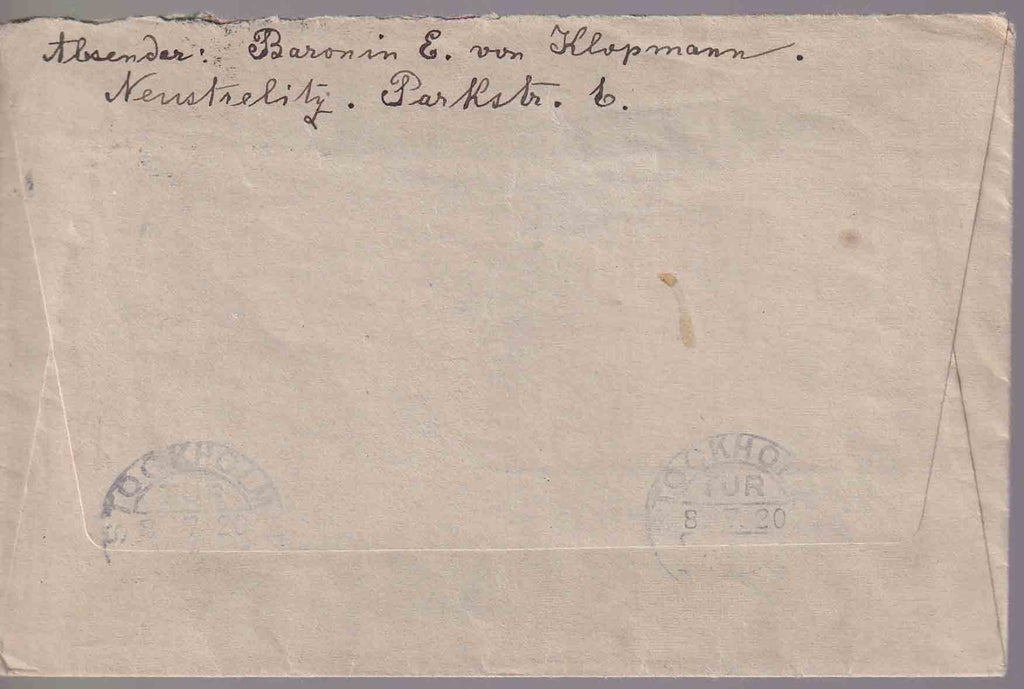 Absender: Baronin E. von Klopmann.
Neustrelitz. Parkstr. 6.
STOCKHOLM
TUR
8 7. 20
STOCKHO
TUR
8 7. 20